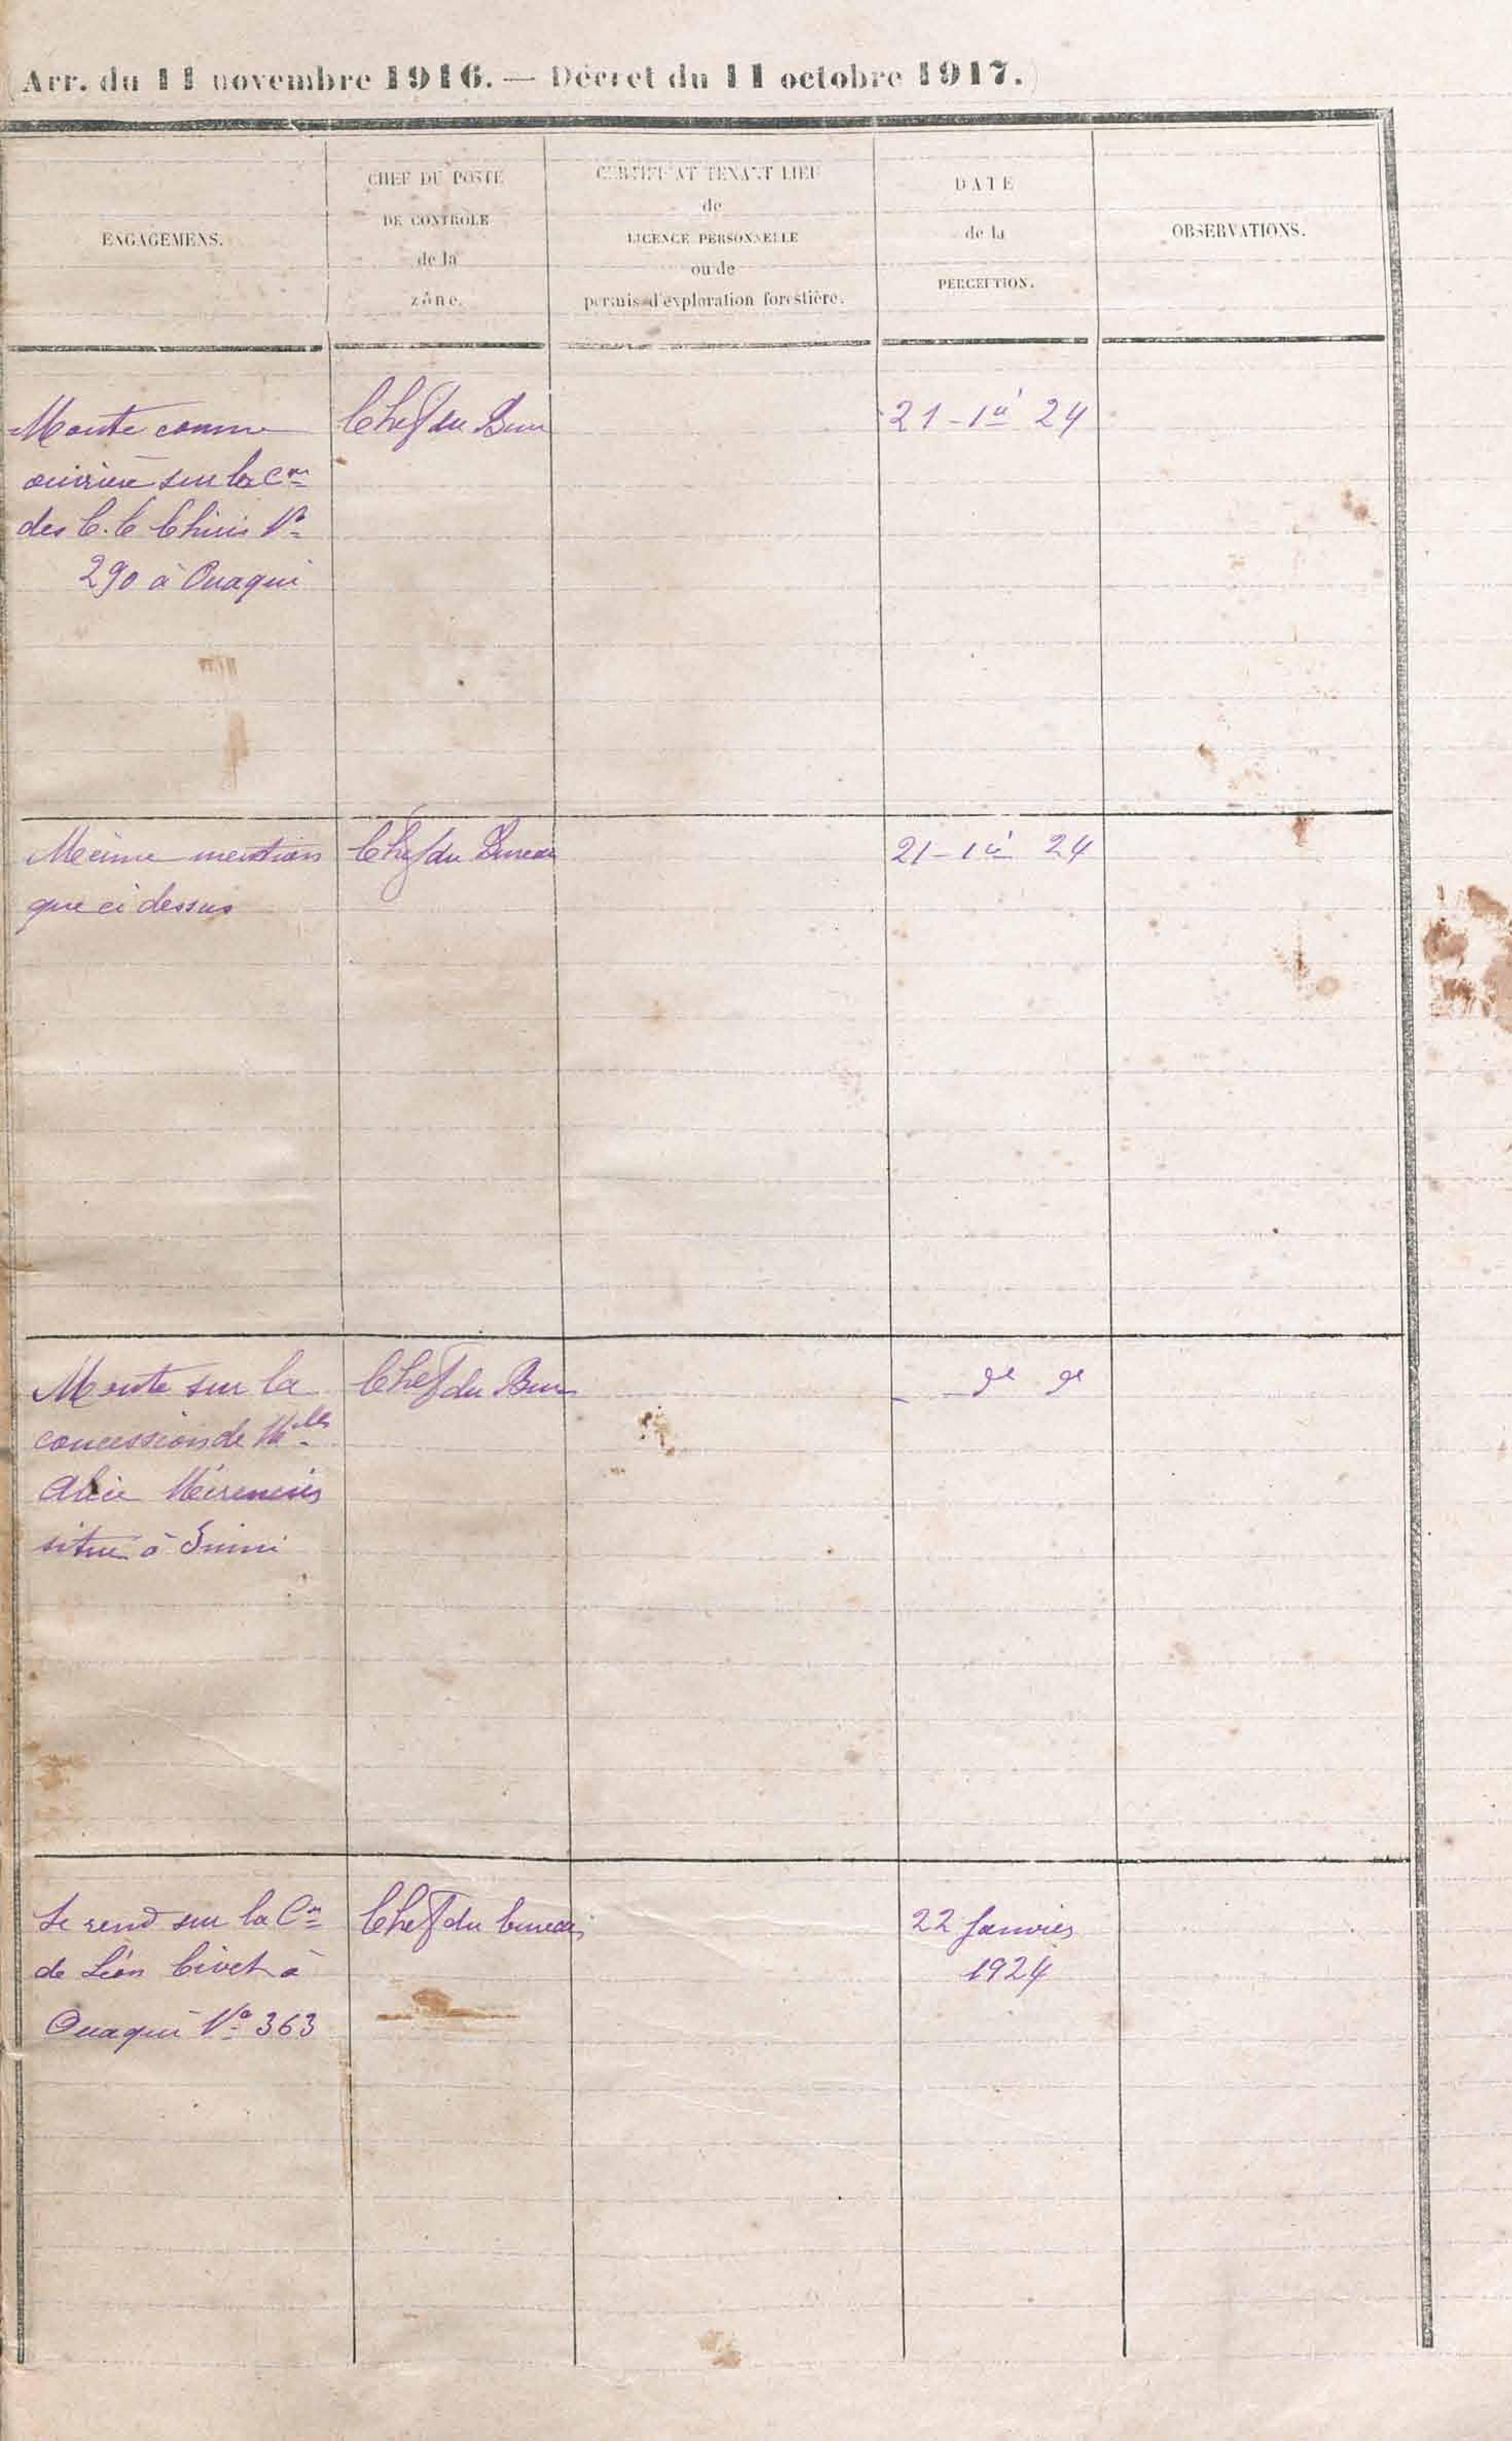 (Arr. du 11 novembre 1916. — Décret du 11 octobre 1917.)
ENGAGEMENS.
CHEF DU POSTE
DE CONTRÔLE
de la
zône.
CERTIFICAT TENANT LIEU
de
LICENCE PERSONNELLE
ou de
permis d'exploration forestière.
DATE
de la
PERCEPTION.
OBSERVATIONS.
Monte comme
sur la Con
des C. C. Chiris No
290 à Ouaqui
Chef du Bure
21-1er 24
Même mention
que ci dessus
Chef du Bureau
21-1er 24
Monte sur la
concession de Melle
Alice
situé à Inini
Chef du Bure
— do do
Se rend sur la Con
de Léon Civet à
Ouaqui No 363
Chef du bureau
22 Janvier
1924